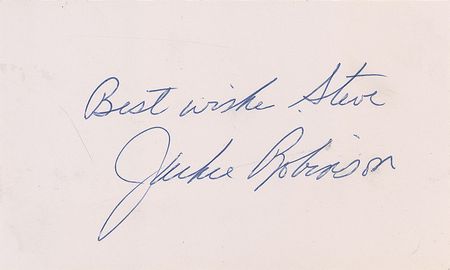 Best wishe Steve
Jackie Robinson